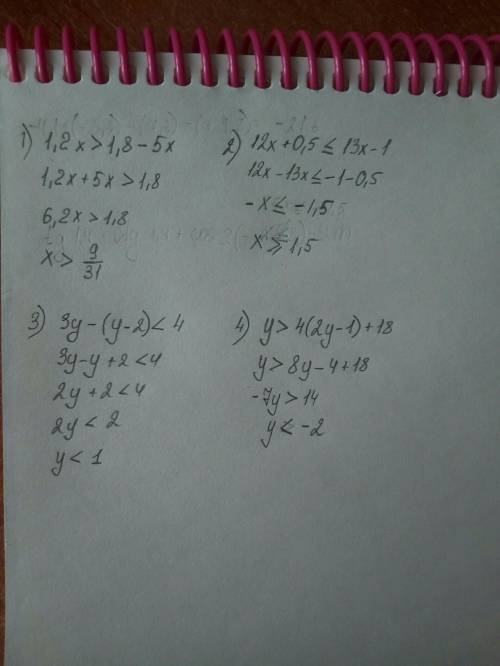 1) 1,2x > 1,8 - 5x
1,2x + 5x > 1,8
6,2x > 1,8
x > 9/31
2) 12x + 0,5 ≤ 13x - 1
12x - 13x ≤ -1 - 0,5
-x ≤ -1,5
x ≥ 1,5
3) 3y - (y - 2) < 4
3y - y + 2 < 4
2y + 2 < 4
2y < 2
y < 1
4) y > 4(2y - 1) + 18
y > 8y - 4 + 18
-7y > 14
y < -2